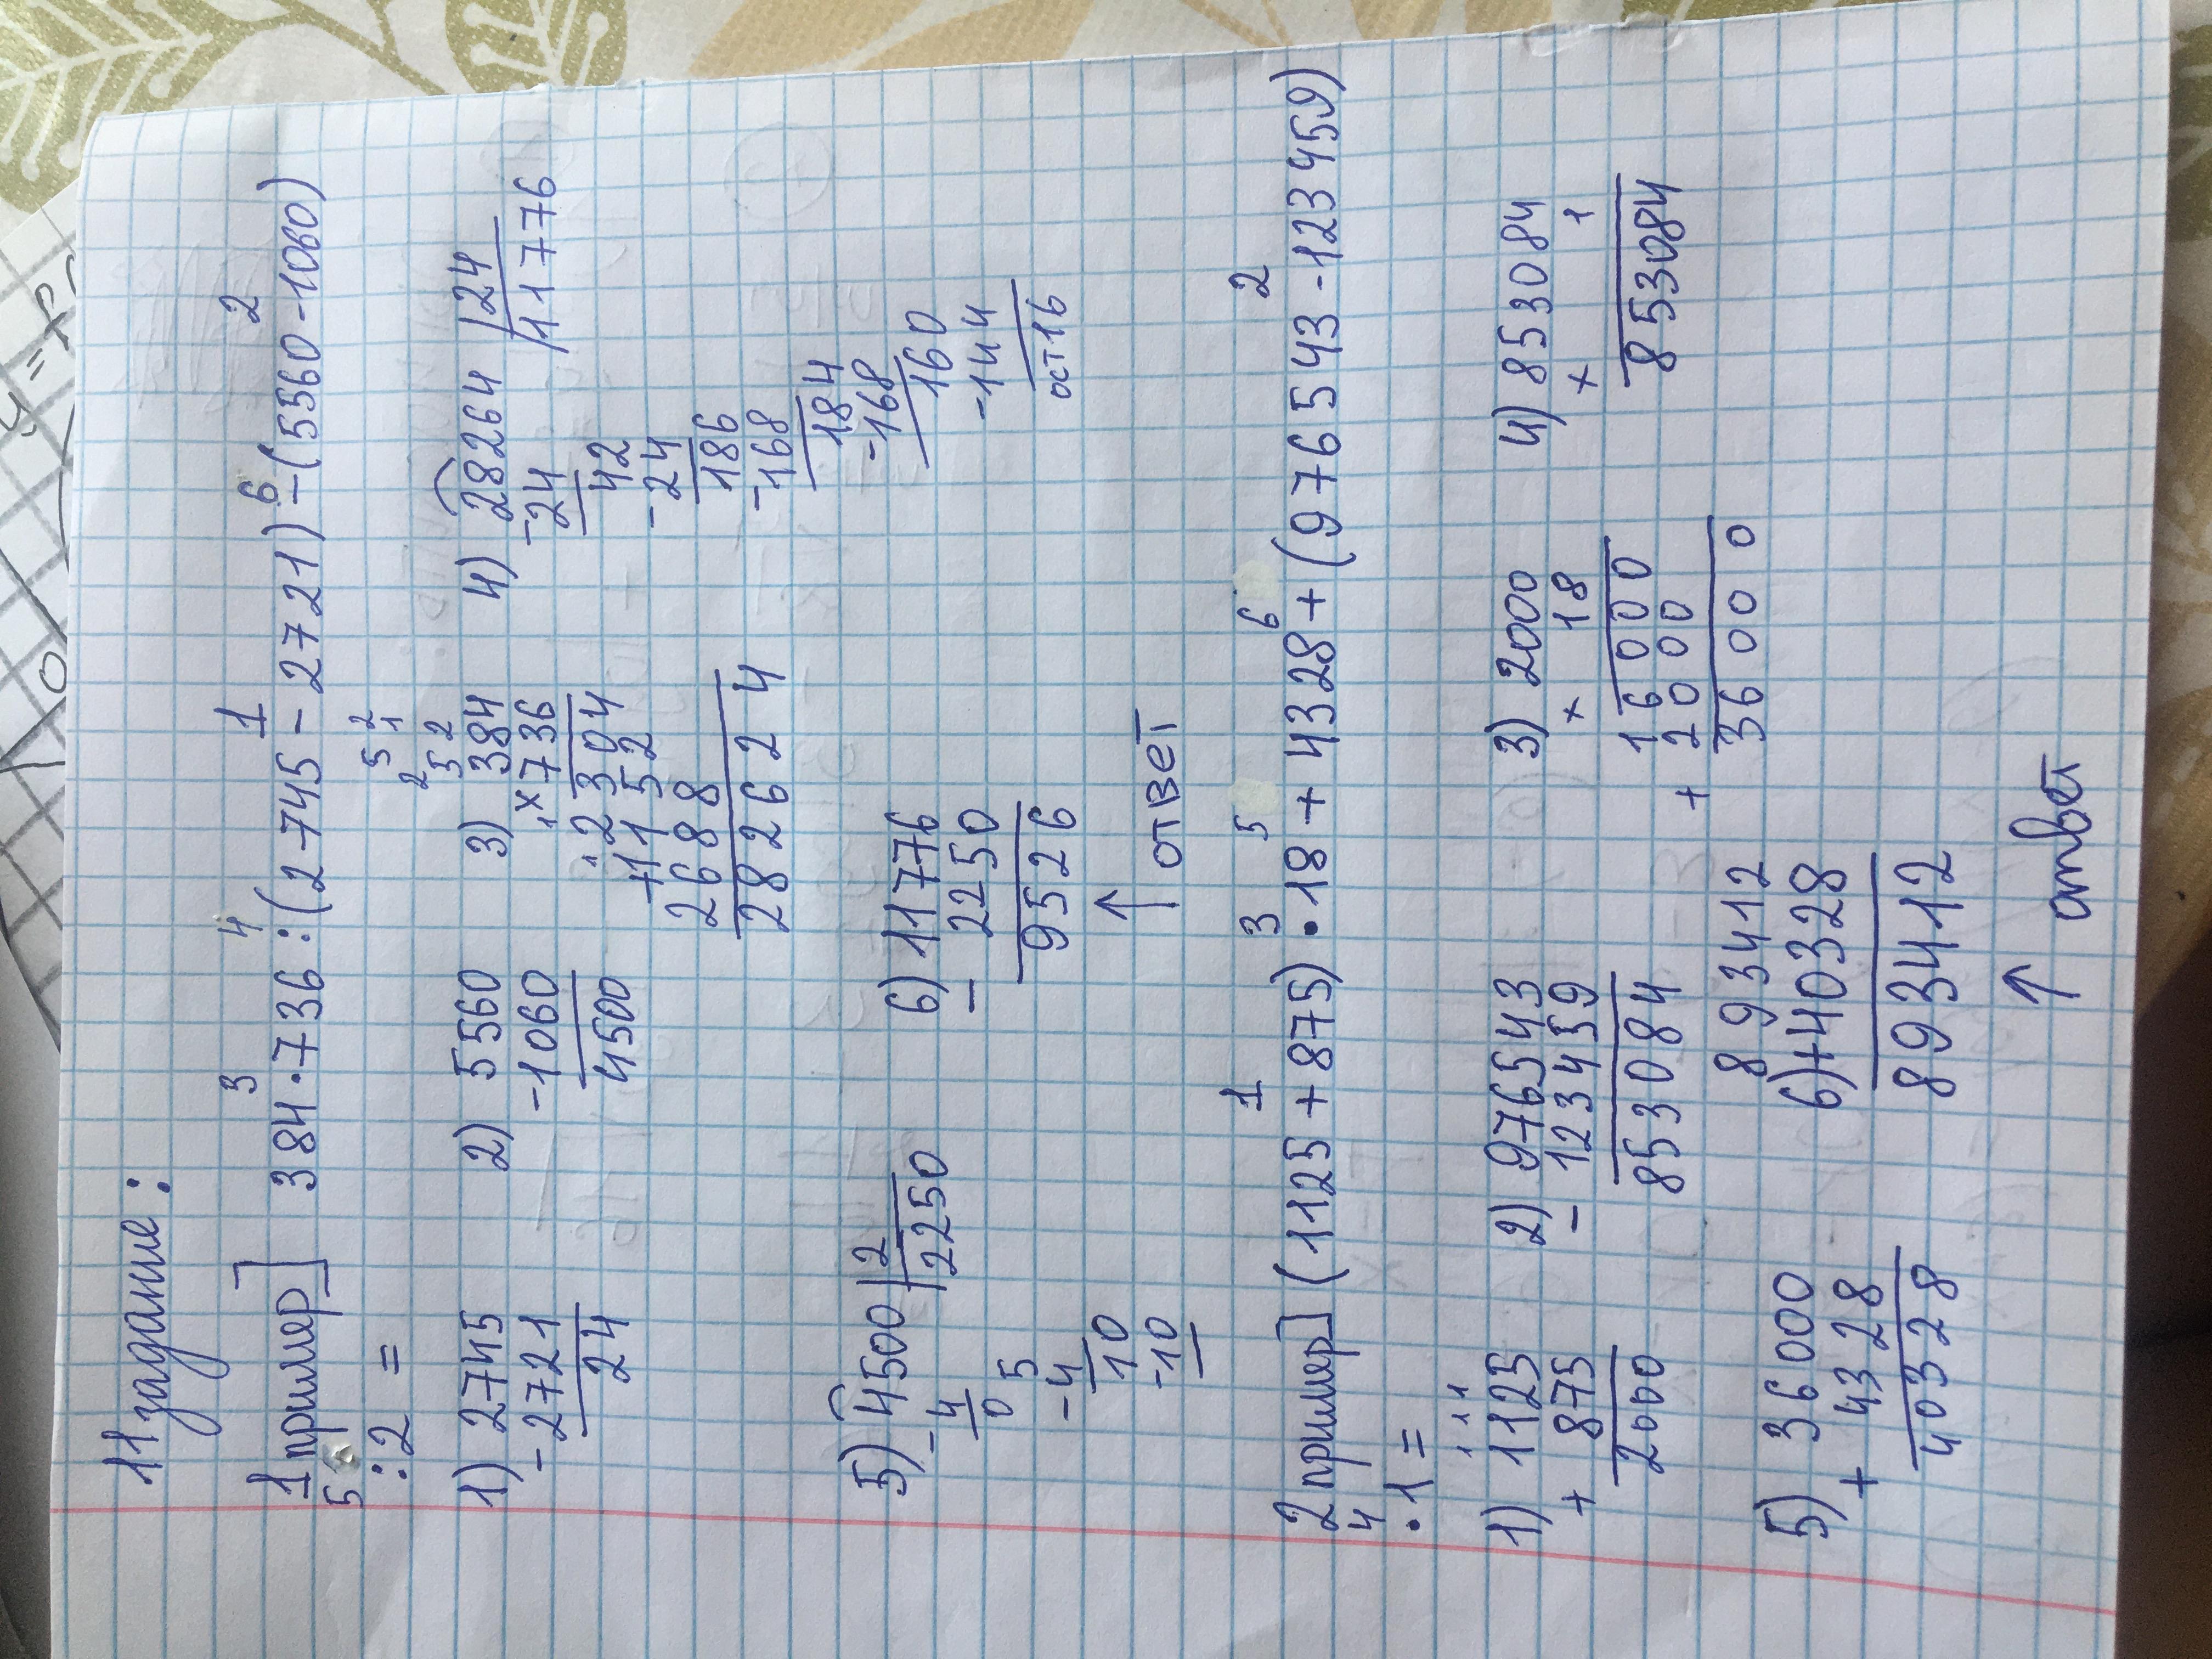 11 задание:
1 пример] 384·736:(2745-2721)-(5560-1060)
3 4 1 6 2
5
:2 =
1) 2745
-2721
24
2) 5560
-1060
4500
2 5 2 1
3 2
3) 384
×736
2304
+1152
2688
282624
4) 28264 |24
-24 |11776
42
-24
186
-168
184
-168
160
-144
ост16
5) 4500 |2
-4 |2250
05
-4
10
-10
6) 11776
- 2250
9526
↑
ответ
1 3 5 6 2
2 пример] (1125+875)·18+4328+(976543-123459)
4
·1=
1 1 1
1) 1125
+ 875
2000
2) 976543
- 123459
853084
3) 2000
× 18
16000
+ 2000
36000
4) 853084
× 1
853084
5) 36000
+ 4328
40328
893412
6)+40328
893412
↑
ответ